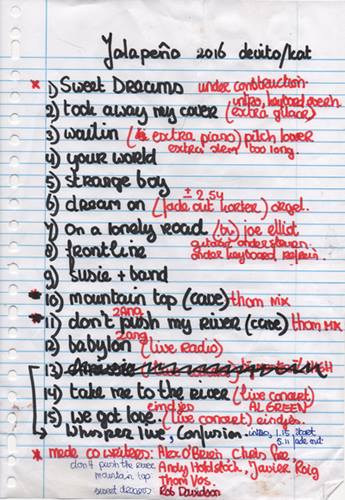 Jalapeño 2016 devito/kat
* 1) Sweet Dreams under construction
2) took away my cover (intro, keyboard zoem extra gitaar)
3) waitin (extra piano) pitch lower
extra stem too long.
4) your world
5) strange boy
± 2,54
6) dream on (fade out korter) orgel.
7) On a lonely road (bv) joe elliot
8) frontline gitaar onder
onder keyboard refrein.
9) susie + band
* 10) mountain top (cave) thom mix
* 11) don't push my river (cave) thom mix
zang
12) babylon (live radio)
zang
13)
14) take me to the river (live concert)
eindjes AL GREEN
15) we got love. (live concert) eindjes
Whisper live, Confusion. intro, 1.15, start
5.11 fade out
* made co writers: Alex O'Brien, Chris
don't push the river Andy Holdstock, Javier Roig
mountain top Thom Vos.
sweet dreams Rob Davidson